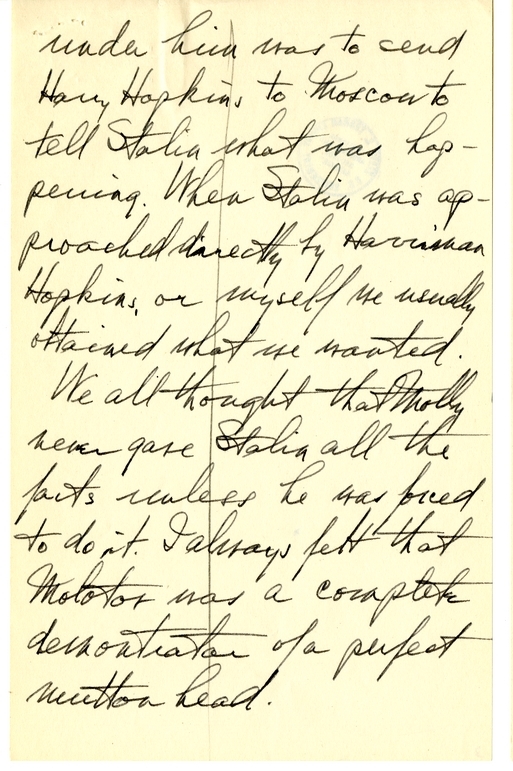 under him was to send
Harry Hopkins to Moscow to
tell Stalin what was hap-
pening. When Stalin was ap-
proached directly by Harriman
Hopkins, or myself we usually
obtained what we wanted.
We all thought that Molly
never gave Stalin all the
facts unless he was forced
to do it. I always felt that
Molotov was a complete
demontrator of a perfect
mutton head.